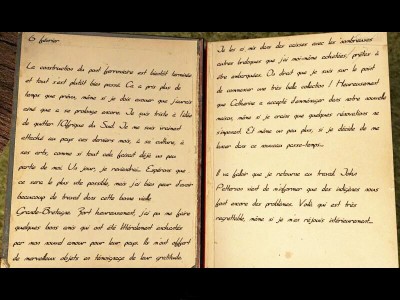 6 février
La construction du pont ferroviaire est bientôt terminée
et tout s'est plutôt bien passé. Ca a pris plus de
temps que prévu, même si je dois avouer que j'aurais
aimé que ça se prolonge encore. Je suis triste à l'idée
de quitter l'Afrique du Sud. Je me suis vraiment
attaché au pays ces derniers mois, à sa culture, à
ses arts, comme si tout cela faisait déjà un peu
partie de moi. Un jour, je reviendrai... Espérons que
ce sera le plus vite possible, mais j'ai bien peur d'avoir
beaucoup de travail dans cette bonne vieille
Grande-Bretagne. Fort heureusement, j'ai pu me faire
quelques bons amis qui ont été littéralement enchantés
par mon nouvel amour pour leur pays. Ils m'ont offert
de merveilleux objets en témoignage de leur gratitude.
Je les ai mis dans des caisses avec les nombreuses
autres breloques que j'ai moi-même achetées, prêtes à
être embarquées. On dirait que je suis sur le point
de commencer une très belle collection ! Heureusement
que Catherine a accepté d'emménager dans notre nouvelle
maison, même si je crois que quelques rénovations ne
s'imposent. Et même un peu plus, si je décide de me
lancer dans ce nouveau passe-temps...
Il va falloir que je retourne au travail. John
Patterson vient de m'informer que des indigènes nous
font encore des problèmes. Voilà qui est très
regrettable, même si je m'en réjouis intérieurement...